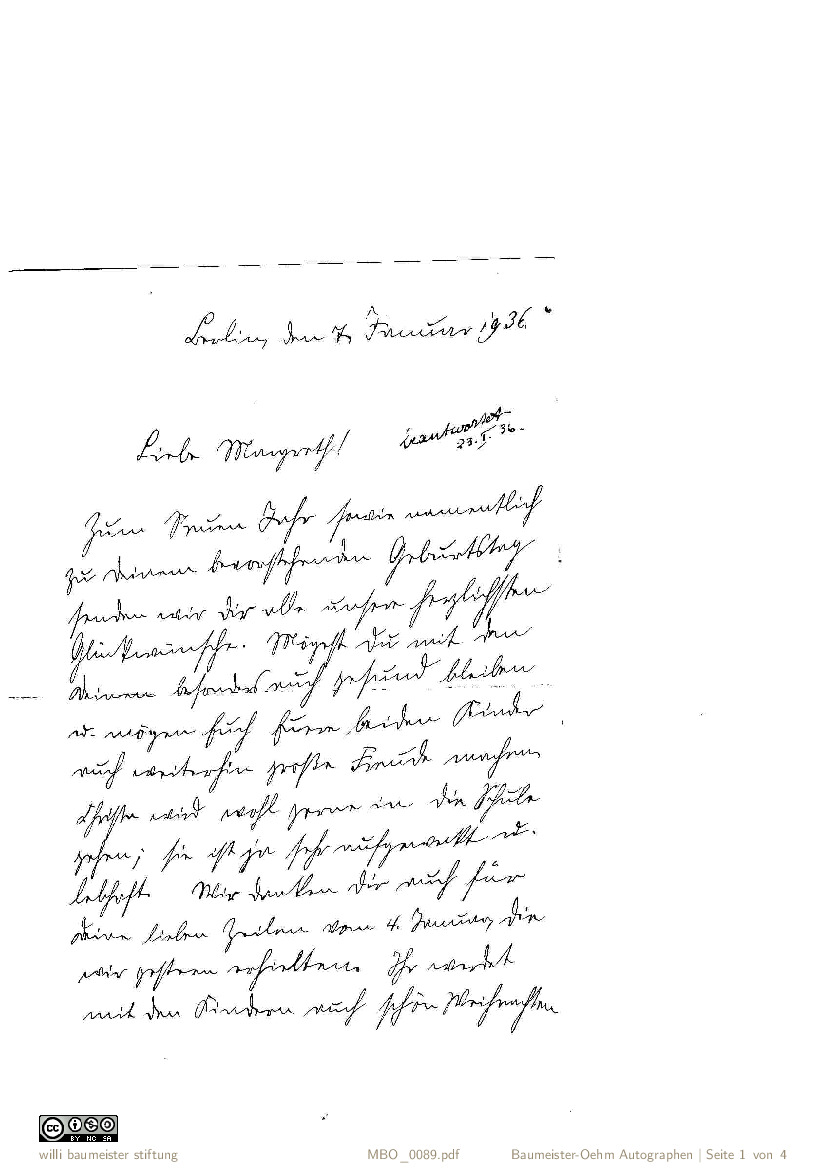 Berlin, den 7. Januar 1936.
Liebe Margreth!
beantwortet
23. I. 36.
Zum Neuen Jahr sowie namentlich
zu deinem bevorstehenden Geburtstag
senden wir dir alle unsere herzlichsten
Glückwünsche. Mögest du mit den
deinen besonders auch gesund bleiben
u. mögen Euch Euere beiden Kinder
auch weiterhin große Freude machen.
Christa wird wohl gerne in die Schule
gehen; sie ist ja sehr aufgeweckt u.
lebhaft. Wir danken dir auch für
deine lieben Zeilen vom 4. Januar, die
wir gestern erhielten. Ihr werdet
mit den Kindern auch schön Weihnachten
BY NC SA
willi baumeister stiftung
MBO_0089.pdf
Baumeister-Oehm Autographen | Seite 1 von 4